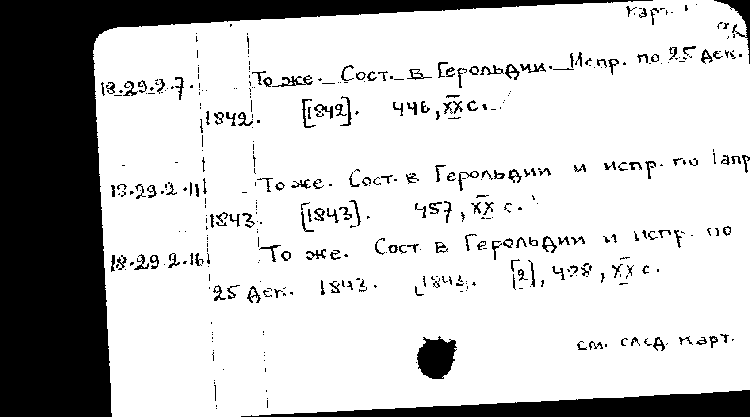 Карт.
18.29.2.7. То же. Сост. в Герольдии. Испр. по 25 дек.
1842. [1842]. 446, XX с.
18.29.2.11 То же. Сост. в Герольдии и испр. по 1 апр
1843. [1843]. 457, XX с.
18.29.2.16. То же. Сост в Герольдии и испр. по
25 дек. 1843. [1843]. [2], 498, XX с.
см. след. карт.